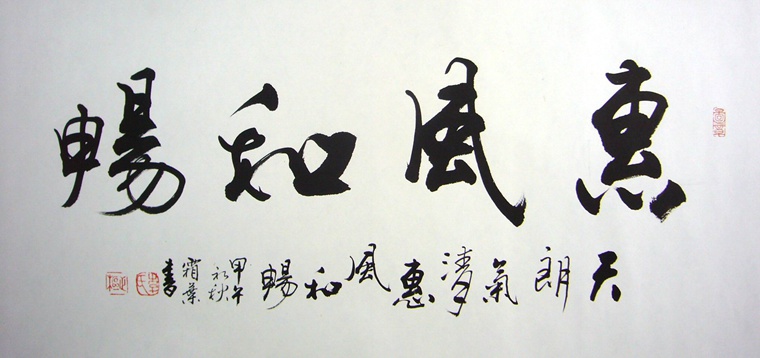 惠風和暢
天朗氣清惠風和暢
甲午
初秋
霜葉
書